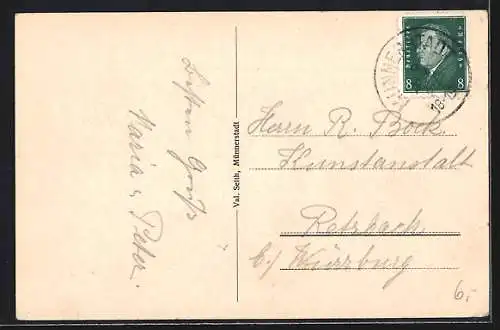 Besten Gruß
Maria u. Peter.
Val. Seith, Münnerstadt
MÜNNERSTADT
18-19
8
8
Herrn R. Bock
Kunstanstalt
Retzbach
b/ Würzburg
6.-